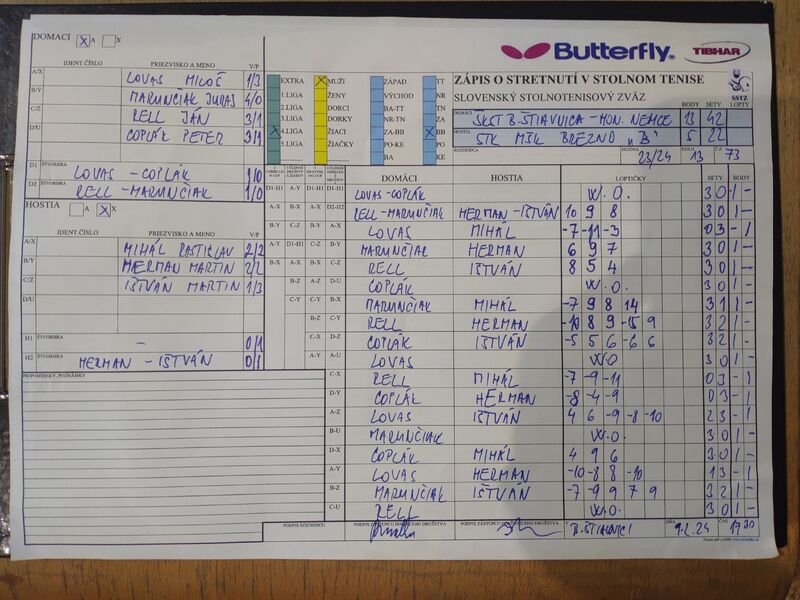 DOMACI X A X
Butterfly® TIBHAR
IDENT.ČÍSLO PRIEZVISKO A MENO V/P
A/X LOVAS MILOŠ 1/3
B/Y MARUNČIAK JURAJ 4/0
C/Z RELL JÁN 3/1
D/U COPLÁK PETER 3/1
D1 ŠTVORHRA LOVAS - COPLÁK 1/0
D2 RELL - MARUNČIAK 1/0
HOSTIA A X X
IDENT.ČÍSLO PRIEZVISKO A MENO V/P
A/X MIHÁL RASTISLAV 2/2
B/Y HERMAN MARTIN 2/2
C/Z IŠTVÁN MARTIN 1/3
D/U
H1 ŠTVORHRA - 0/1
H2 ŠTVORHRA HERMAN - IŠTVÁN 0/1
PRIPOMIENKY, POZNÁMKY
EXTRA X MUŽI ZÁPAD TT
1.LIGA ŽENY VÝCHOD NR
2.LIGA DORCI BA-TT TN
3.LIGA DORKY NR-TN ZA
X 4.LIGA ŽIACI ZA-BB X BB
5.LIGA ŽIAČKY PO-KE PO
BA KE
ZÁPIS O STRETNUTÍ V STOLNOM TENISE
SLOVENSKÝ STOLNOTENISOVÝ ZVÄZ SSTZ
BODY SETY LOPTY
DOMÁCI ŠKST B.ŠTIAVNICA - HON. NEMCE 13 42
HOSTIA STK MŠK BREZNO "B" 5 22
ROZHODCA SEZÓNA 23/24 KOLO 13 Č.Z. 73
DOMÁCI HOSTIA LOPTIČKY SETY BODY
D1-H1 A-Y D1-H1 D1-H1 LOVAS - COPLÁK W.O. 3 0 1 -
A-X B-X A-X D2-H2 RELL - MARUNČIAK HERMAN - IŠTVÁN 10 9 8 3 0 1 -
B-Y C-Z B-Y A-X LOVAS MIHÁL -7 -11 -3 0 3 - 1
A-Y D1-H1 C-Z B-Y MARUNČIAK HERMAN 6 9 7 3 0 1 -
B-X A-X B-X C-Z RELL IŠTVÁN 8 5 4 3 0 1 -
B-Z A-Z D-U COPLÁK W.O. 3 0 1 -
C-Y C-Y B-X MARUNČIAK MIHÁL -7 9 8 14 3 1 1 -
B-Z C-Y RELL HERMAN -10 8 9 -15 9 3 2 1 -
C-X D-Z COPLÁK IŠTVÁN -5 5 6 -6 6 3 2 1 -
A-Y A-U LOVAS W.O 3 0 1 -
C-X RELL MIHÁL -7 -9 -11 0 3 - 1
D-Y COPLÁK HERMAN -8 -4 -9 0 3 - 1
A-Z LOVAS IŠTVÁN 4 6 -9 -8 -10 2 3 - 1
B-U MARUNČIAK W.O. 3 0 1 -
D-X COPLÁK MIHÁL 4 9 6 3 0 1 -
A-Y LOVAS HERMAN -10 -8 8 -10 1 3 - 1
B-Z MARUNČIAK IŠTVÁN -7 -9 9 7 9 3 2 1 -
C-U RELL W.O. 3 0 1 -
PODPIS ROZHODCU PODPIS ZÁSTUPCU DOMÁCEHO DRUŽSTVA B. ŠTIAVNICI DŇA 9.2.24 ČAS 17 30